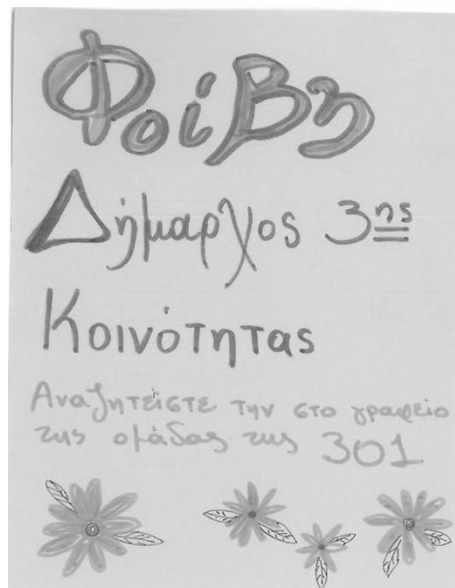 Φοίβη
Δήμαρχος 3ης
Κοινότητας
Αναζητείστε την στο γραφείο
της ομάδας της 301